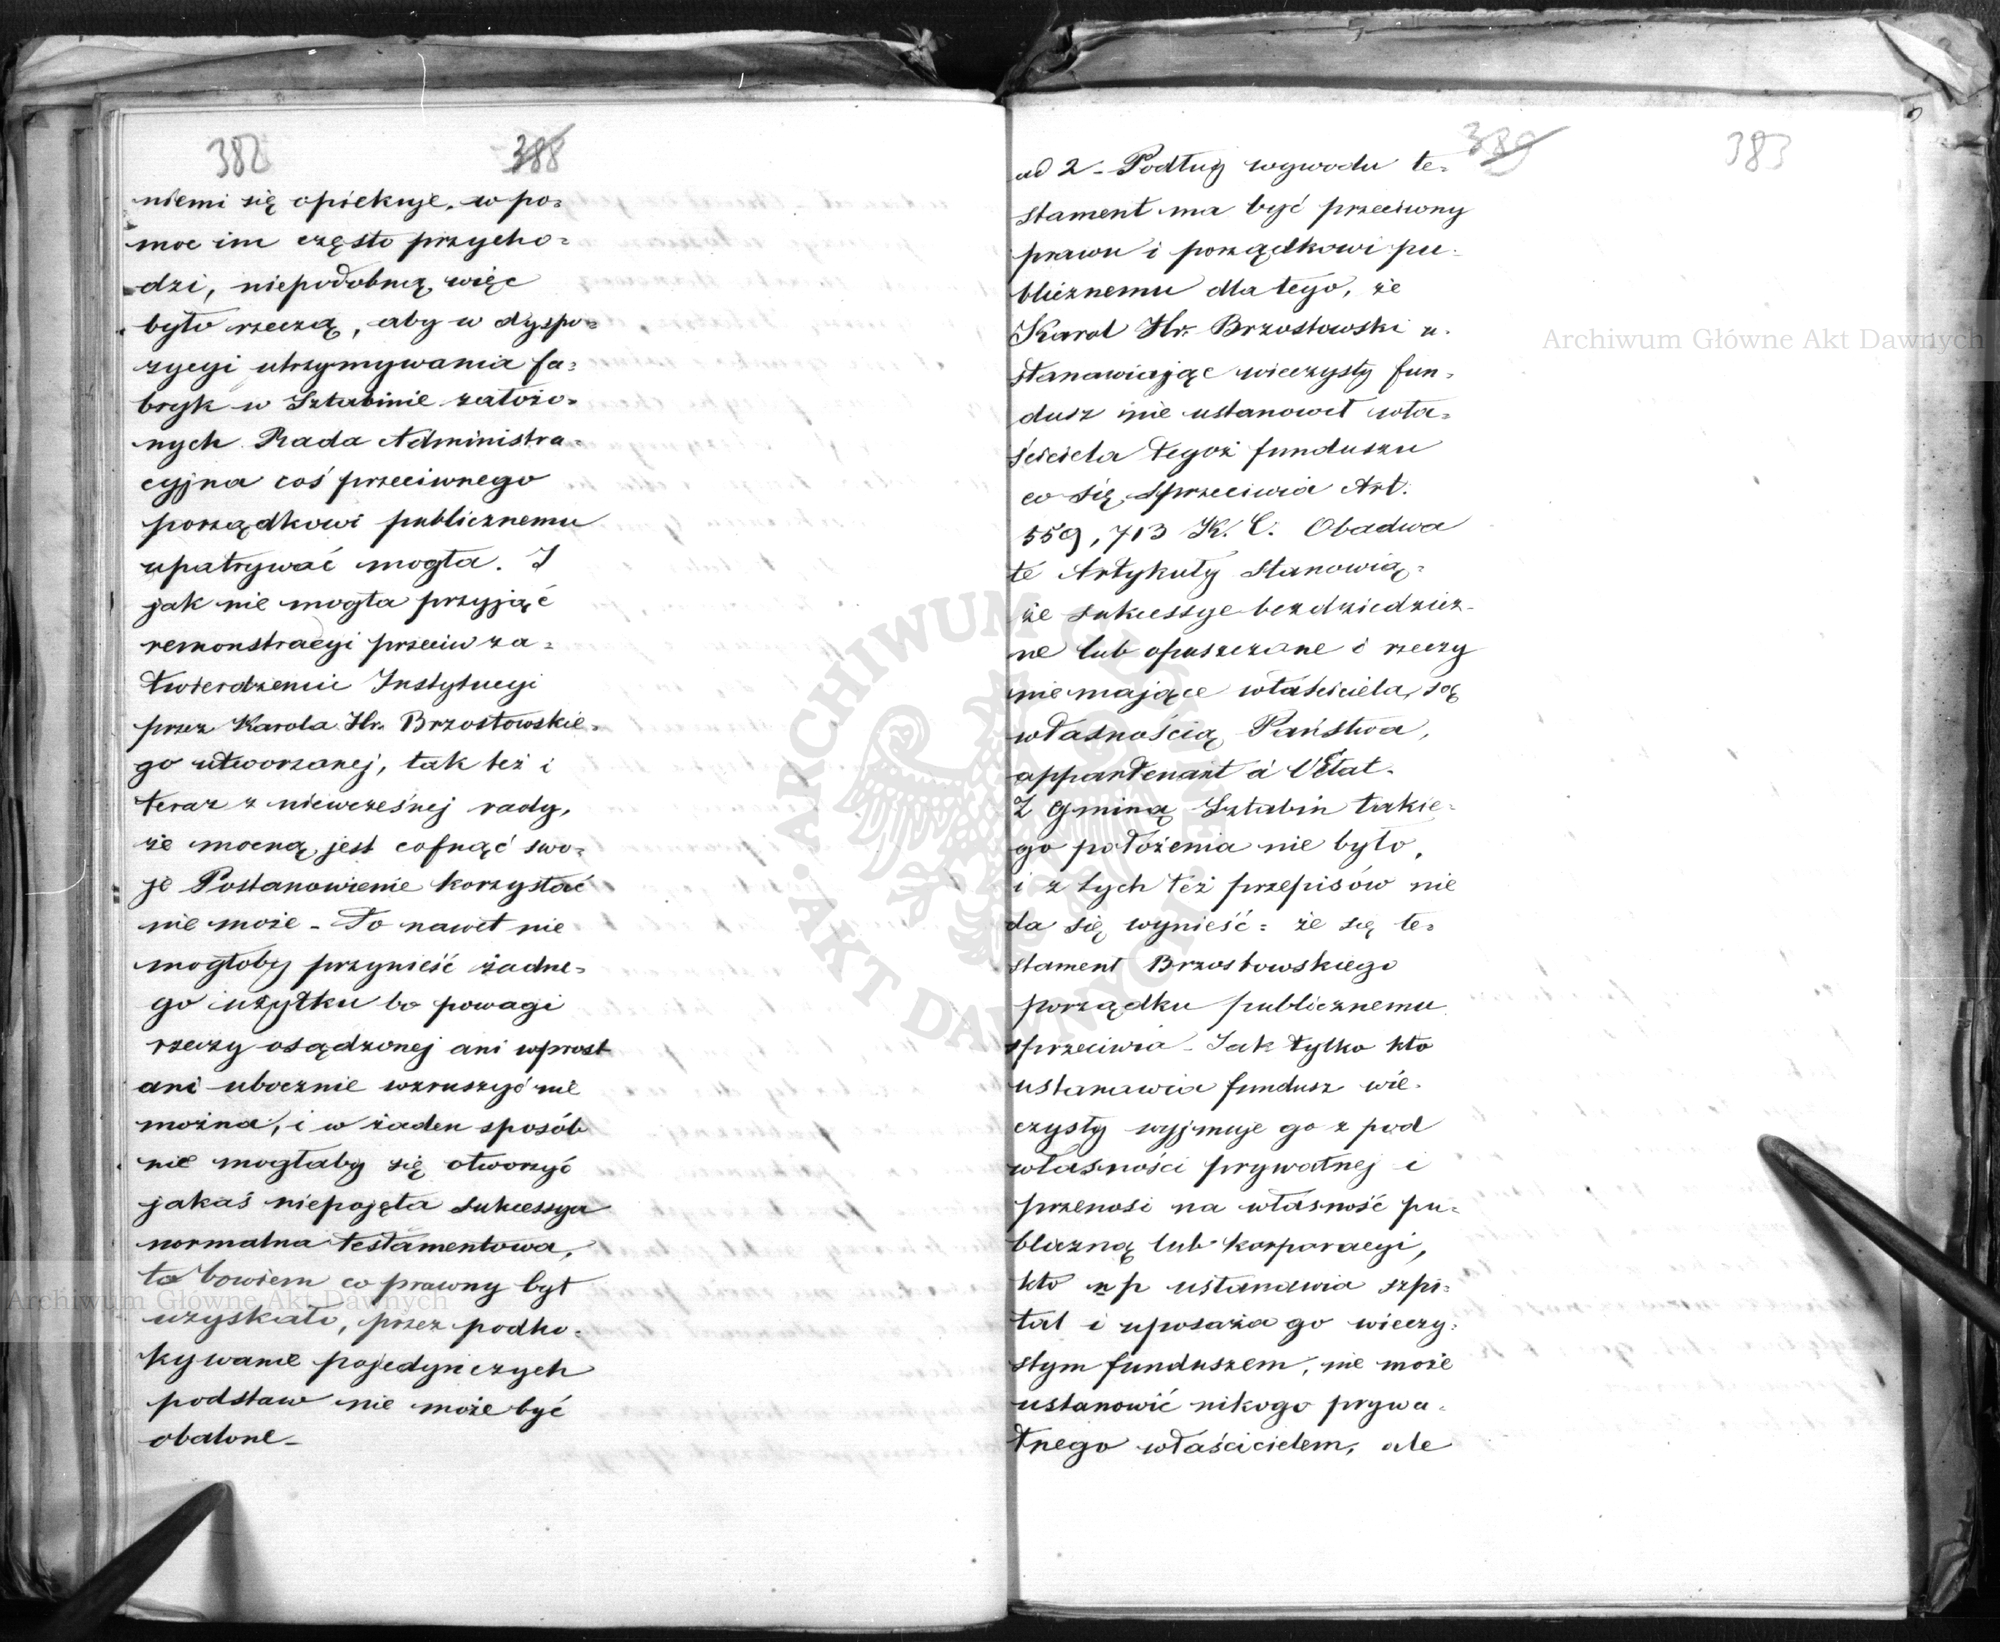 382 388
niemi się opiekuje, w po=
moc im często przycho=
dzi, niepodobną więc
było rzeczą, aby w dyspo=
zycyi utrzymywania fa=
bryk w Sztabinie założo=
nych Rada Administra=
cyjna coś przeciwnego
porządkowi publicznemu
upatrywać mogła. I
jak nie mogła przyjąć
remonstracyi przeciw za=
twierdzeniu Instytucyi
przez Karola Hr. Brzostowskie=
go utworzanej, tak też i
teraz z niewcześnej rady,
że mocną jest cofnąć swo=
je Postanowienie korzystać
nie może – To nawet nie
mogłoby przynieść żadne=
go użytku bo powagi
rzeczy osądzonej ani wprost
ani ubocznie wzruszyć nie
można, i w żaden sposób
nie mogłaby się otworzyć
jakaś niepojęta sukcessya
normalna testamentowa,
to bowiem co prawny byt
uzyskało, przez podko=
kywanie pojedyńczych
podstaw nie może być
obalone –
389 383
ad 2 – Podług wywodu te=
stament ma być przeciwny
prawu i porządkowi pu=
blicznemu dla tego, że
Karol Hr. Brzostowski u=
stanawiając wieczysty fun=
dusz nie ustanowił wła=
ściciela tegoż funduszu
co się sprzeciwia Art.
559, 713 K. C. Obadwa
te Artykuły stanowią=
że sukcessye bezdziedzicz=
ne lub opuszczane i rzeczy
nie mające właściciela, są
własnością Państwa,
appartenant á l'Etat.
Z gminą Sztabin takie=
go położenia nie było,
i z tych też przepisów nie
da się wynieść: że się te=
stament Brzostowskiego
porządku publicznemu
sprzeciwia – Jak tylko kto
ustanawia fundusz wie=
czysty wyjmuje go z pod
własności prywatnej i
przenosi na własność pu=
blazną lub korporacyi,
kto np ustanawia szpi=
tal i uposaża go wieczy=
stym funduszem, nie może
ustanowić nikogo prywa=
tnego właścicielem, ale
Archiwum Główne Akt Dawnych
Archiwum Główne Akt Dawnych